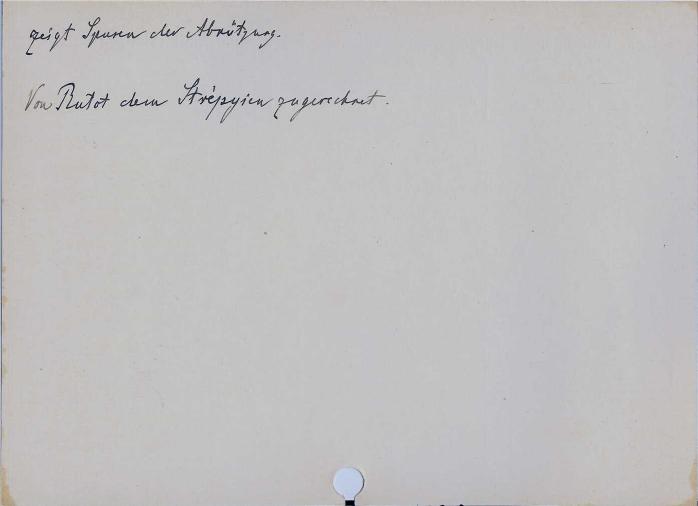 zeigt Spuren der Abnützung.
Von Rutot dem Strépyien zugerechnet.